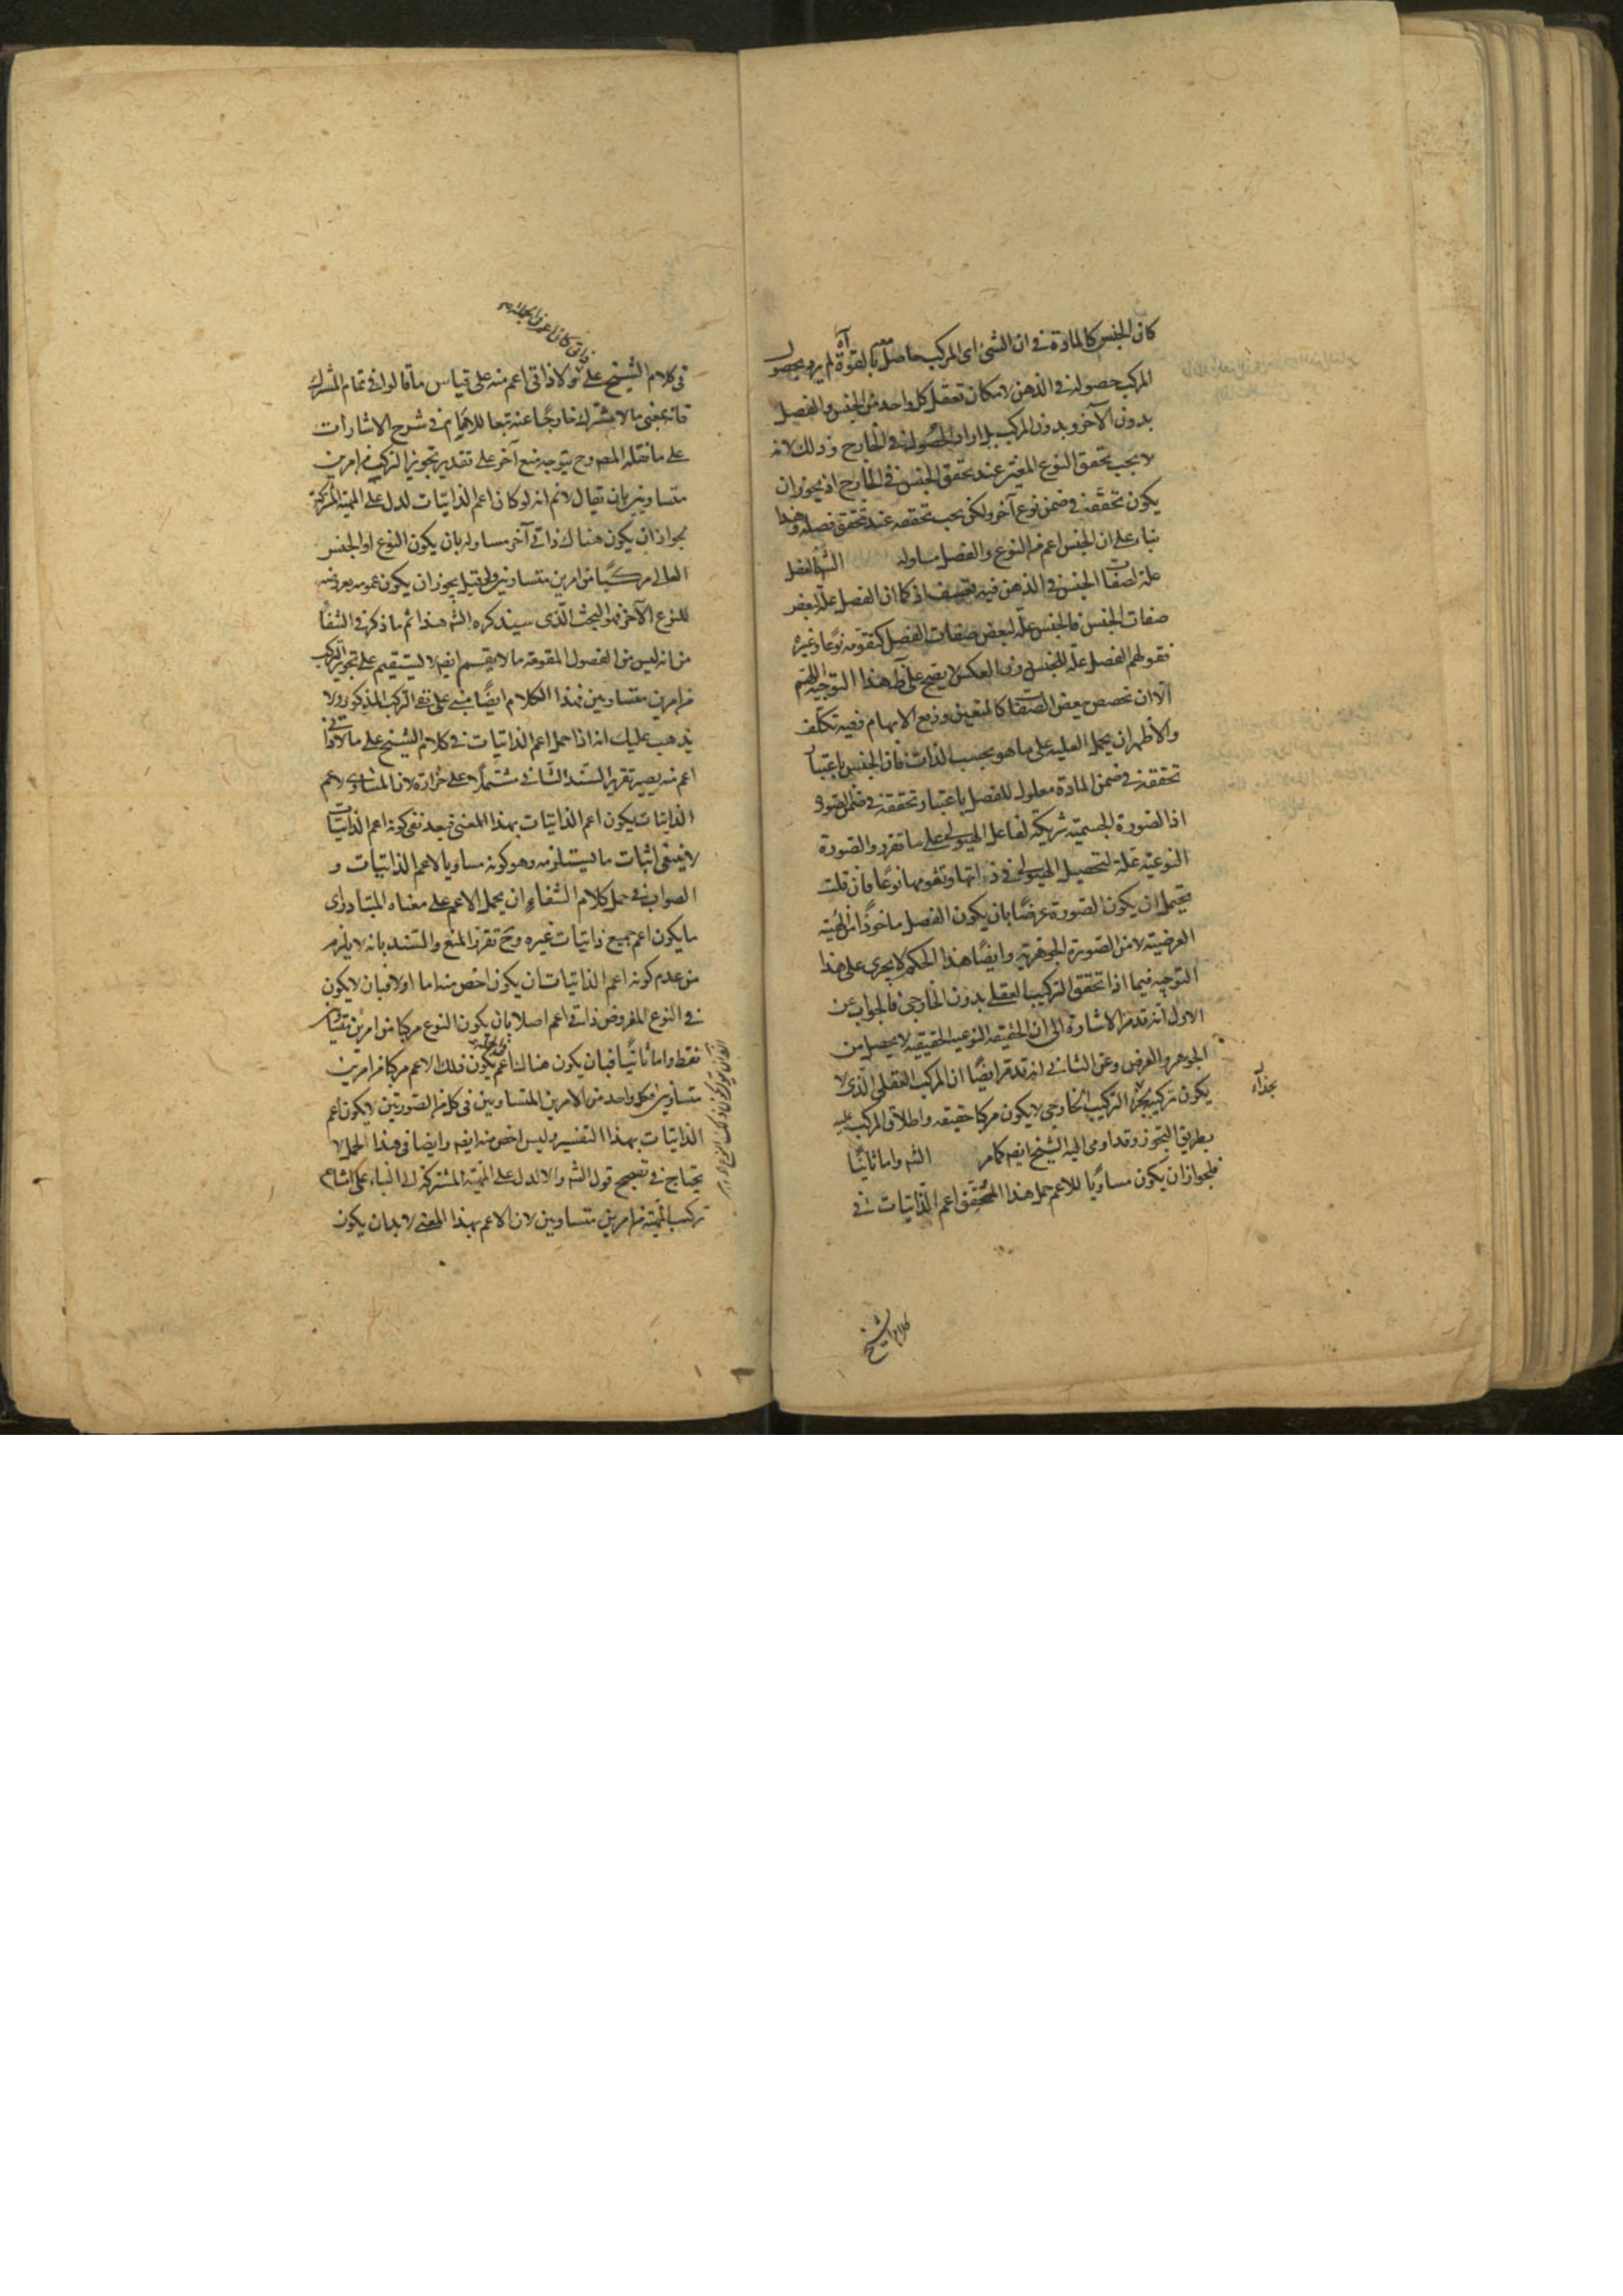 كان الجنس كالمادة في ان الشئ اى المركب حاصل معه بالقوة آه لم يرد بحصول
المركب حصوله في الذهن لامكان تعقل كل واحد من الجنس والفصل
بدون الآخر وبدون المركب بل اراد الحصول في الخارج وذلك لانه
لا يجب تحقق النوع المعين عند تحقق الجنس في الخارج اذ يجوز ان
يكون تحققه في ضمن نوع آخر ولكن يجب تحققه عند تحقق فصله وهذا
بناء على ان الجنس اعم من النوع والفصل مساو له الش الفصل
علة لصفات الجنس في الذهن فيه تعسف اذ كما ان الفصل علة لبعض
صفات الجنس فالجنس علة لبعض صفات الفصل كتقومه نوعا وغيره
فقولهم الفصل علة للجنس دون العكس لا يصح على هذا التوجيه اللهم
الا ان تخصص بعض الصفات كالمتعين ورفع الابهام ففيه تكلف
والاظهر ان يحمل العلية على ما هو بحسب الذات فان الجنس باعتبار
تحققه في ضمن المادة معلول للفصل باعتبار تحققه في ضمن الصورة
اذ الصورة الجسمية شريكة لفاعل الهيولى على ما تقرر والصورة
النوعية علة لتحصيل الهيولى في ذاتها وتقومها نوعا فان قلت
يحتمل ان يكون الصورة عرضا بان يكون الفصل ماخوذا من الهيئة
العرضية لا من الصورة الجوهرية وايضا هذا الحكم لا يجرى على هذا
التوجيه فيما اذا تحقق التركيب العقلى بدون الخارجى فالجواب عن
الاول انه قد مر الاشارة الى ان الحقيقة النوعية الحقيقية لا يحصل من
الجوهر والعرض وعن الثانى انه قد مر ايضا ان المركب العقلى الذى لا
يكون تركيبه بحذاء التركيب الخارجى لا يكون مركبا حقيقة واطلاق المركب عليه
بطريق التجوز وقد اومى اليه الشيخ ايضا كما مر الش واما ثانيا
فلجواز ان يكون مساويا للاعم حمل هذا المحقق اعم الذاتيات في
بحذاء
كلام الشيخ
في كلام الشيخ على ما لا ذاتى اعم منه على قياس ما قالوا في تمام المشترك
فانه بمعنى ما لا مشترك خارجا عنه تبعا للامام في شرح الاشارات
على ما نقله المص وح يتوجه منع آخر على تقدير تجويز التركيب من امرين
متساويين بان يقال لانم انه لو كان اعم الذاتيات لدل على المهية المشتركة
لجواز ان يكون هناك ذاتى آخر مساو له بان يكون النوع او الجنس
العالى مركبا من امرين متساويين ولو قيل يجوز ان يكون عمومه بعروضه
للنوع الآخر فهو البحث الذى سيذكره الش هذا ثم ما ذكره في الشفا
من انه ليس من الفصول المقومة ما لا يقسم ايضا لا يستقيم على تجويز التركيب
من امرين متساويين فهذا الكلام ايضا مبنى على نفى التركيب المذكور ولا
يذهب عليك انه اذا حمل اعم الذاتيات في كلام الشيخ على ما لا ذاتى
اعم منه يصير تقرير السند الثانى مشتملا على حزازة لان المساوى لاعم
الذاتيات يكون اعم الذاتيات بهذا المعنى فبعد نفى كونه اعم الذاتيات
لا ينبغى اثبات ما يستلزمه وهو كونه مساويا لاعم الذاتيات و
الصواب في حمل كلام الشفاء ان يحمل الاعم على معناه المتبادر اى
ما يكون اعم جميع ذاتيات غيره وح تقرر المنع والسند بانه لا يلزم
من عدم كونه اعم الذاتيات ان يكون اخص منه اما اولا فبان لا يكون
في النوع المفروض ذاتى اعم اصلا بان يكون النوع مركبا من امرين متساويين
فقط واما ثانيا فبان يكون هناك اعم يكون ذلك الاعم مركبا من امرين
متساويين فكل واحد من الامرين المتساويين في كل من الصورتين لا يكون اعم
الذاتيات بهذا التفسير وليس اخص منه ايضا وايضا في هذا الحمل لا
يحتاج في تصحيح قول الش والا لدل على المهية المشتركة الى البناء على امتناع
تركب المهية من امرين متساويين لان الاعم بهذا المعنى لا بد ان يكون